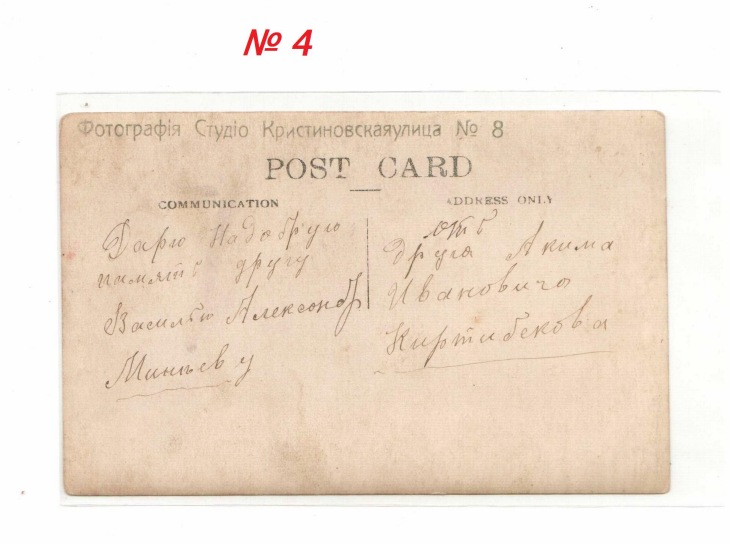 № 4
Фотографія Студіо Кристиновскаяулица № 8
POST CARD
COMMUNICATION
ADDRESS ONLY
Дарю Надобрую
память другу
Василью Александр
Минѣеву
отъ
друга Акима
Ивановича
Киртибекова